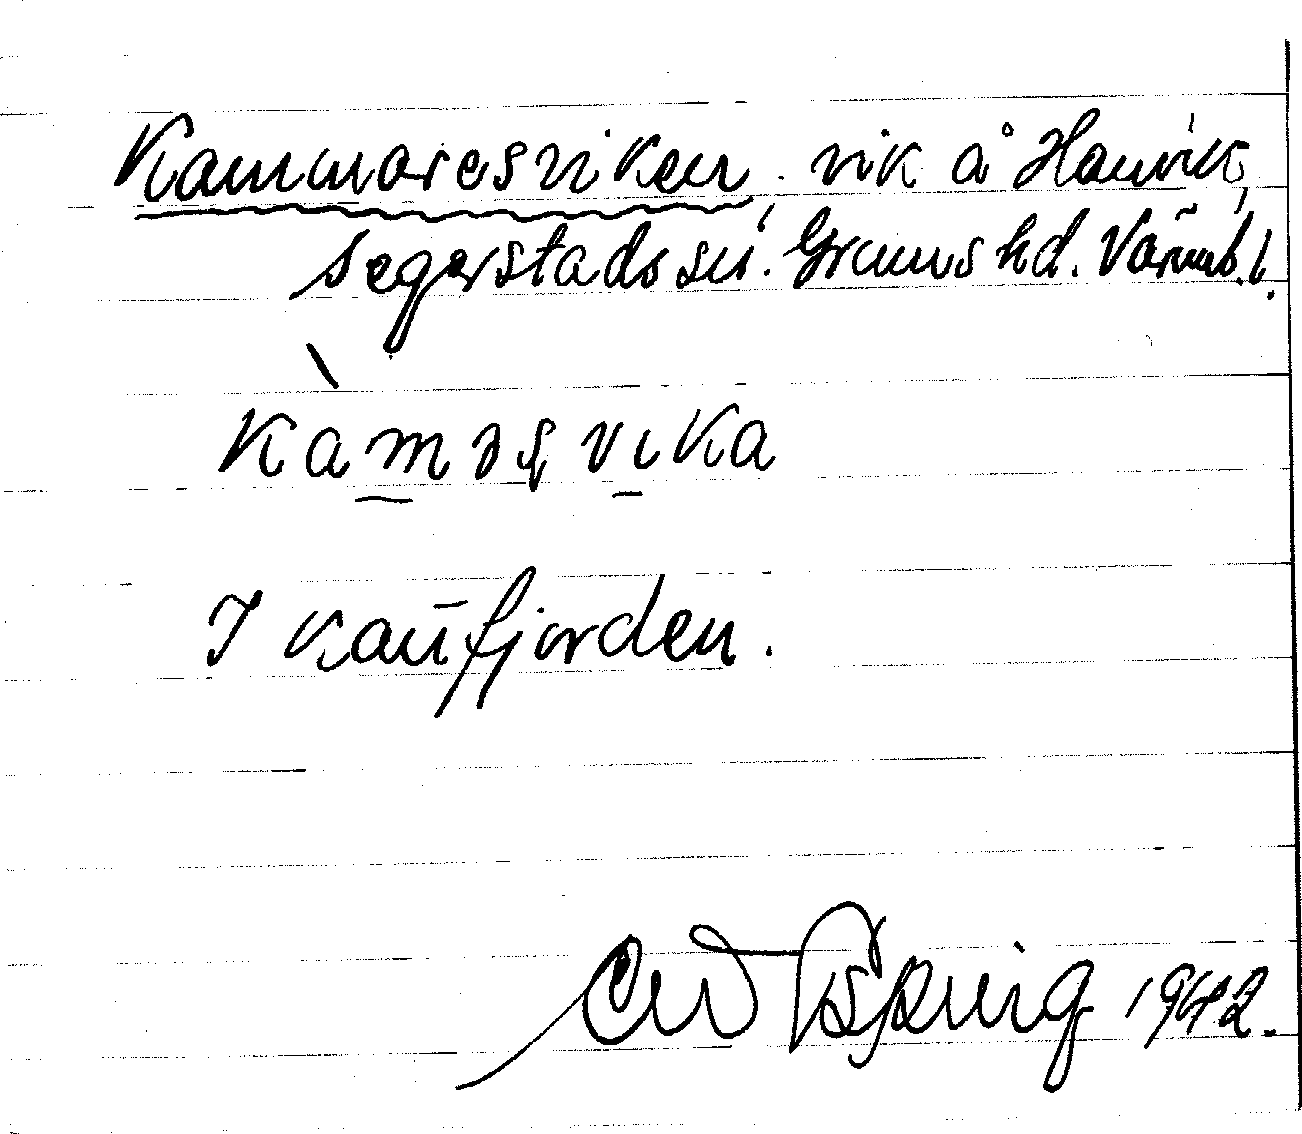 Kammaresviken, vik å Hanvik,
Segerstads sn. Grums hd. Värmb. l.
Kàməs vika
I kan̄fjorden.
1942.